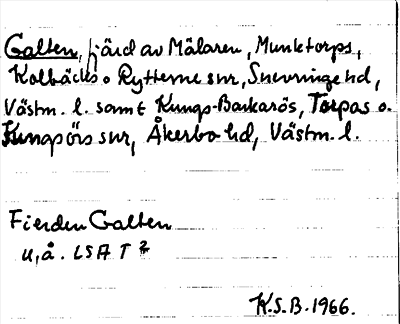 Galten, fjärd av Mälaren, Munktorps,
Kolbäcks o Rytterne snr, Snevringe hd,
Västm. l. samt Kungs-Barkarös, Torpas o.
Kungsörs snr, Åkerbo hd, Västm. l.
Fierden Galten
u.å. LSA T 2
K.S.B. 1966.